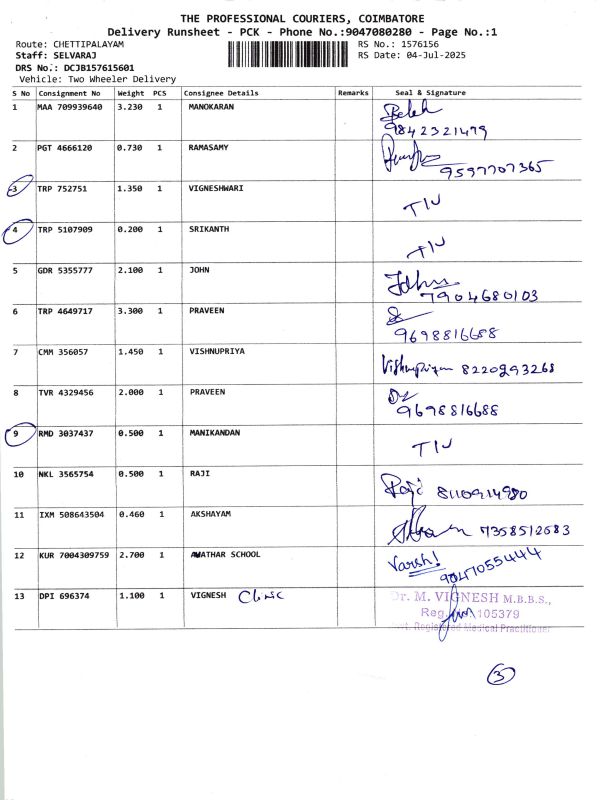 THE PROFESSIONAL COURIERS, COIMBATORE
Delivery Runsheet - PCK - Phone No.:9047080280 - Page No.:1
Route: CHETTIPALAYAM RS No.: 1576156
Staff: SELVARAJ RS Date: 04-Jul-2025
DRS No.: DCJB157615601
Vehicle: Two Wheeler Delivery
S No Consignment No Weight PCS Consignee Details Remarks Seal & Signature
1 MAA 709939640 3.230 1 MANOKARAN
9842321479
2 PGT 4666120 0.730 1 RAMASAMY
9597707365
3 TRP 752751 1.350 1 VIGNESHWARI
4 TRP 5107909 0.200 1 SRIKANTH
5 GDR 5355777 2.100 1 JOHN
7904680103
6 TRP 4649717 3.300 1 PRAVEEN
9698816688
7 CMM 356057 1.450 1 VISHNUPRIYA Vishnupriya 8220293268
8 TVR 4329456 2.000 1 PRAVEEN
9698816688
9 RMD 3037437 0.500 1 MANIKANDAN
10 NKL 3565754 0.500 1 RAJI Raji 8110914980
11 IXM 508643504 0.460 1 AKSHAYAM 7358512683
12 KUR 7004309759 2.700 1 AWATHAR SCHOOL Varsh! 9047055444
13 DPI 696374 1.100 1 VIGNESH Clinic Dr. M. VIGNESH M.B.B.S.,
Reg. 105379
Registered Medical Practitioner
3